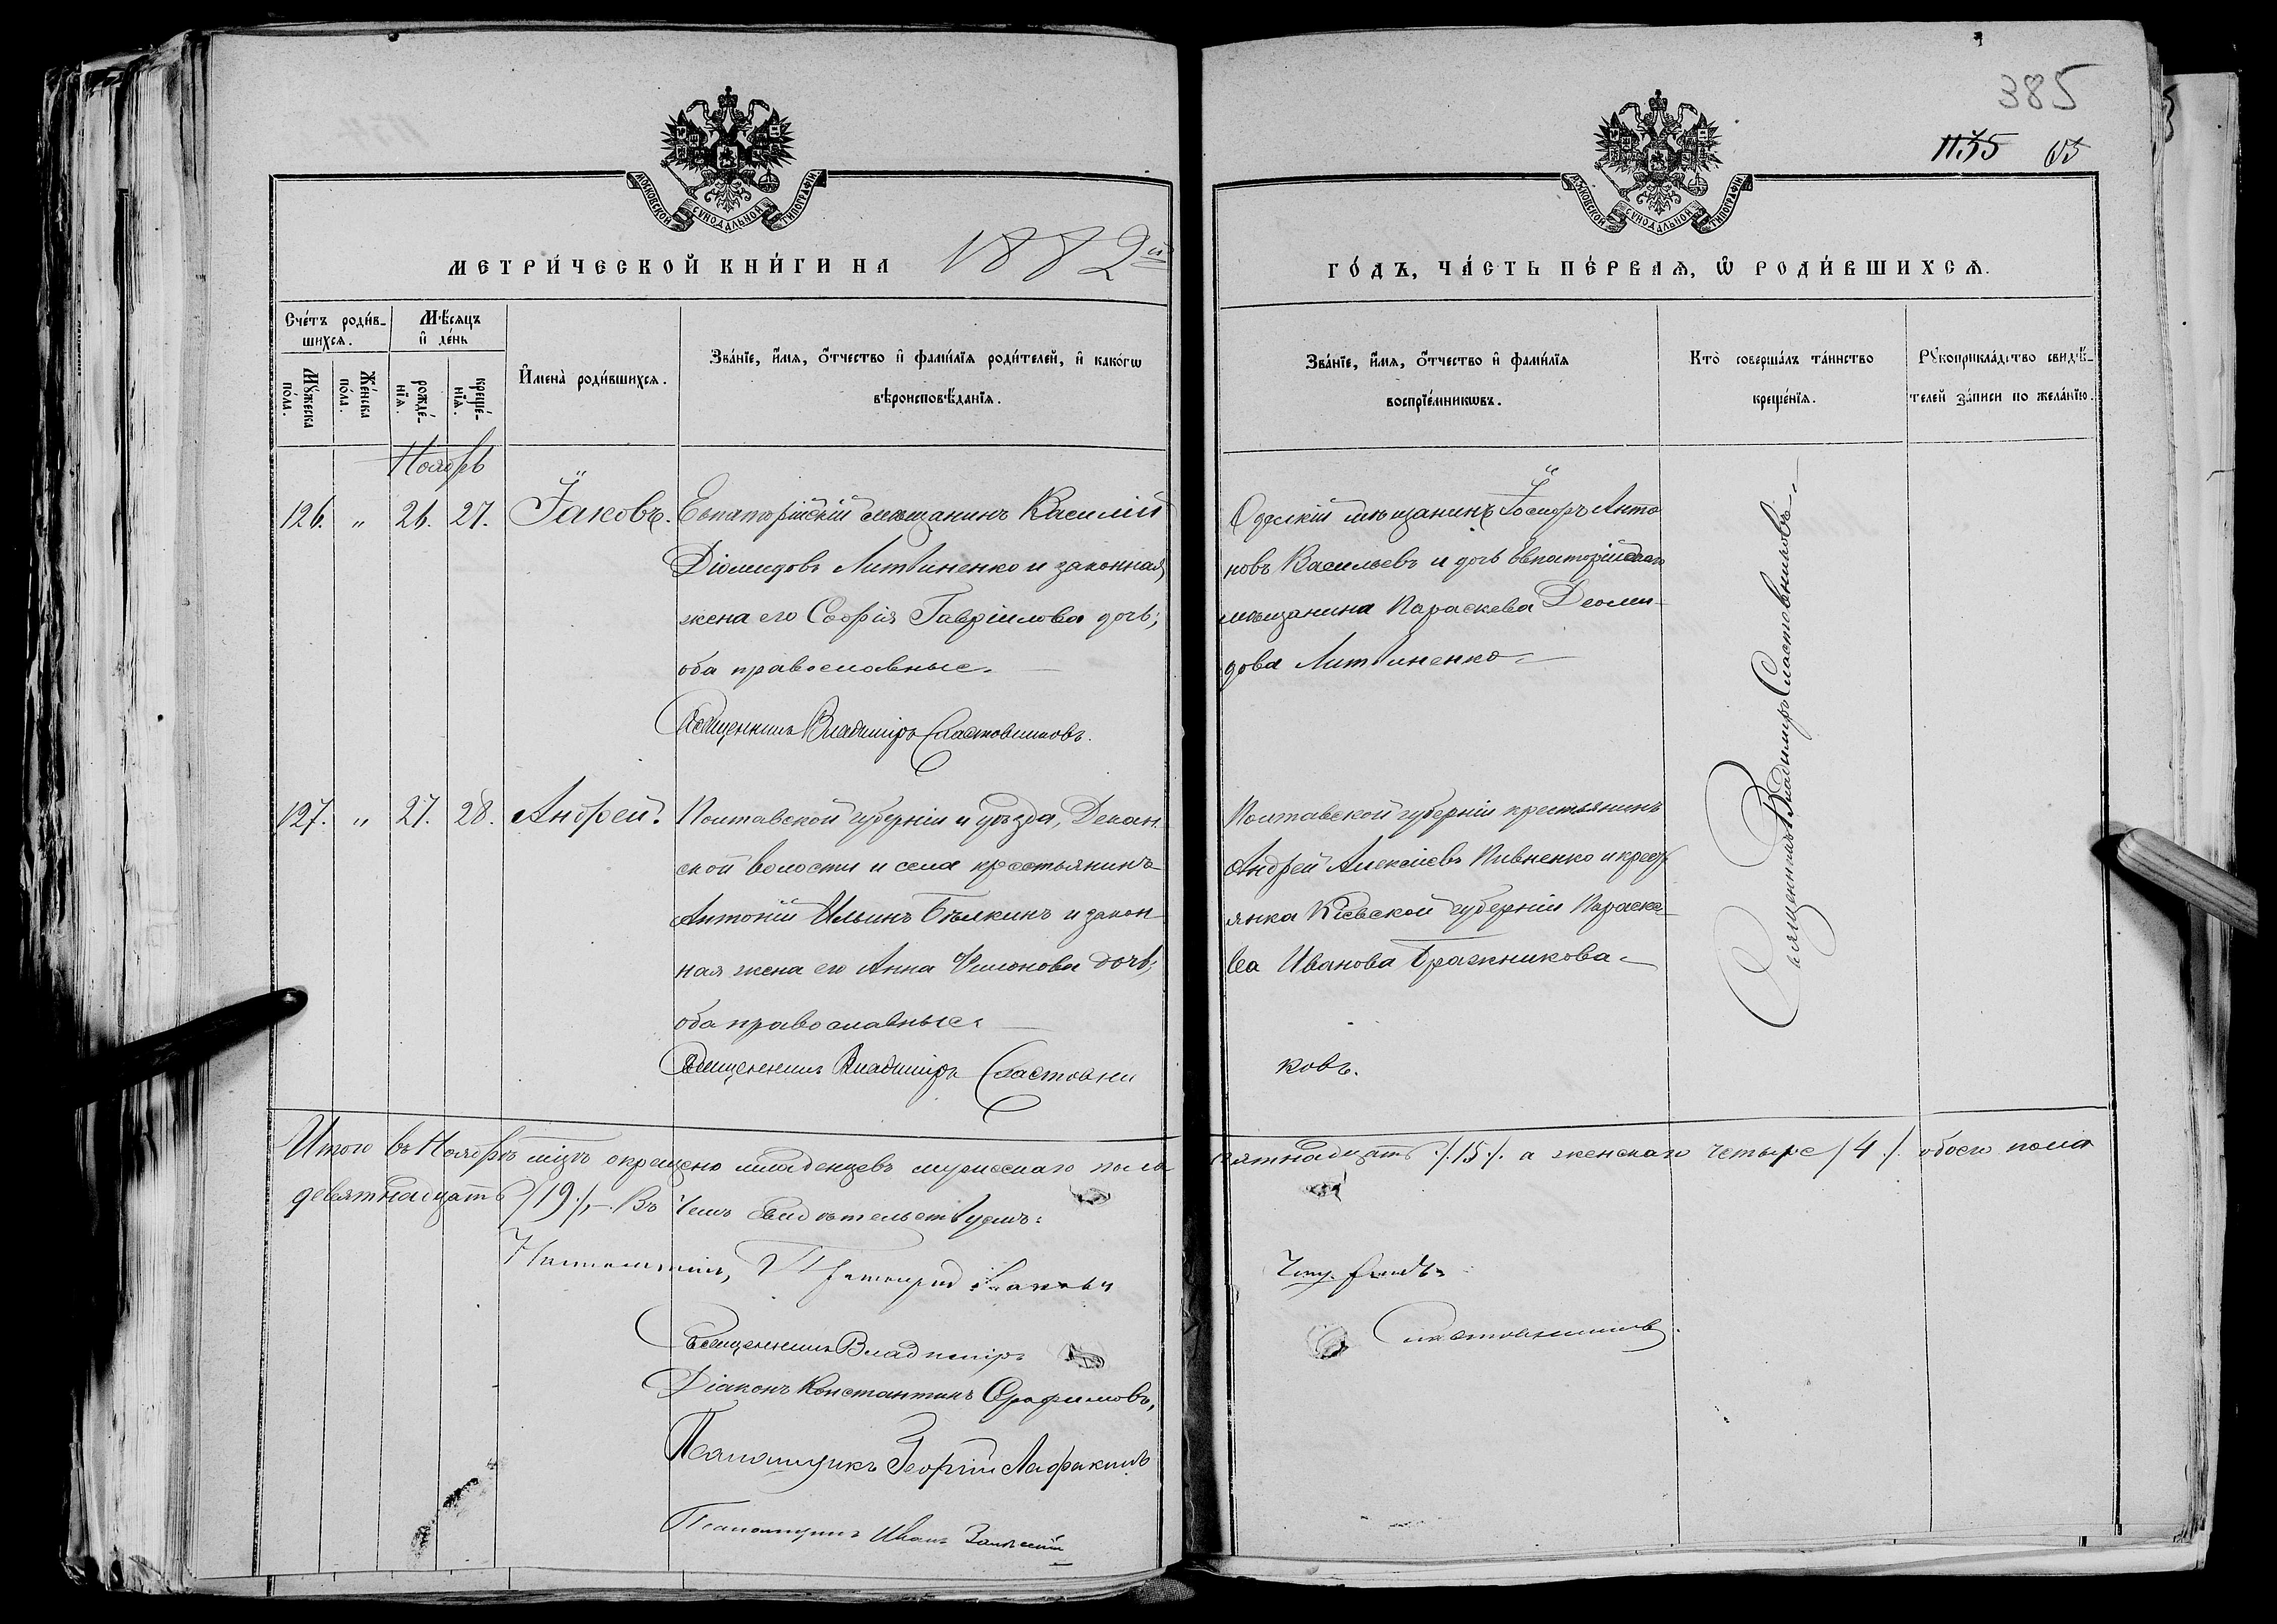 385
1135 65
МОСКОВСКОЙ СѴНОДАЛЬНОЙ ТИПОГРАФІИ
МОСКОВСКОЙ СѴНОДАЛЬНОЙ ТИПОГРАФІИ
МЕТРИ́ЧЕСКОЙ КНИ́ГИ НА 1882й
ГО́ДЪ, ЧА́СТЬ ПЕ́РВАѦ, Ѡ҆ РОДИ́ВШИХСѦ.
Сче́тъ роди́в-
шихсѧ.
Мꙋ́жеска по́ла.
Же́нска по́ла.
Мѣ́сѧцъ
и҆ де́нь
рожде́-
нїѧ.
креще́-
нїѧ.
И҆мена̀ роди́вшихсѧ.
Зва́нїе, и҆́мѧ, ѻ҆́тчество и҆ фами́лїѧ роди́телей, и҆ како́гѡ
вѣроисповѣ́данїѧ.
Зва́нїе, и҆́мѧ, ѻ҆́тчество и҆ фами́лїѧ
воспрїе́мникѡвъ.
Кто̀ соверша́лъ та́инство
креще́нїѧ.
Рꙋкоприкла́дство свидѣ́-
телей за́писи по жела́нїю.
Ноябрь
126. " 26. 27. Іаковъ. Евпаторійскій мѣщанинъ Василій
Діомидовъ Литвиненко и законная
жена его Софія Гавріилова дочь;
оба православные.
Священникъ Владиміръ Сластовниковъ.
Одесскій мѣщанинъ Іосифъ Анто
новъ Васильевъ и дочь Евпаторійскаго
мѣщанина Параскева Деоми-
дова Литвиненко.
Священникъ Владиміръ Сластовниковъ
127. " 27. 28. Андрей. Полтавской губерніи и уѣзда, Декан
ской волости и села крестьянинъ
Антоній Ильинъ Бѣлкинъ и закон-
ная жена его Анна Симонова дочь;
оба православные.
Священникъ Владиміръ Сластовни
ковъ.
Полтавской губерніи крестьянинъ
Андрей Алексіевъ Пивненко и крест
янка Кіевской губерніи Параске-
ва Иванова Бражникова
Итого въ Ноябрѣ мцѣ окрещено младенцевъ мужескаго пола пятнадцать /.15./. а женскаго четыре /4./. обоего пола
девятнадцать /19./. Въ чемъ свидѣтельствуемъ:
Священникъ Владиміръ Сластовниковъ.
Діаконъ Константинъ Серафимовъ,
Псаломщикъ Георгій
Псаломщикъ Иванъ